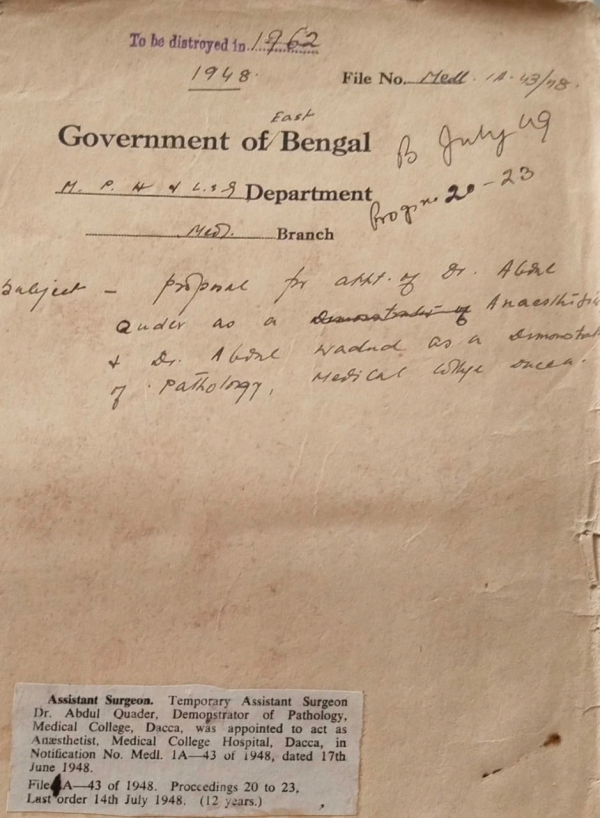 To be distroyed in 1962
1948.
File No. Medl. 1A-43/48.
East
Government of Bengal
B July 49
M. P. H & L.S.G Department
Progs no 20-23
Medl. Branch
Subject - Proposal for appt. of Dr. Abdul
Quader as a Demonstrator of Anaesthetist
& Dr. Abdul Wadud as a Demonstrat
of Pathology, Medical College Dacca.
Assistant Surgeon. Temporary Assistant Surgeon
Dr. Abdul Quader, Demonstrator of Pathology,
Medical College, Dacca, was appointed to act as
Anæsthetist, Medical College Hospital, Dacca, in
Notification No. Medl. 1A—43 of 1948, dated 17th
June 1948.
File 1A—43 of 1948. Proceedings 20 to 23,
Last order 14th July 1948. (12 years.)